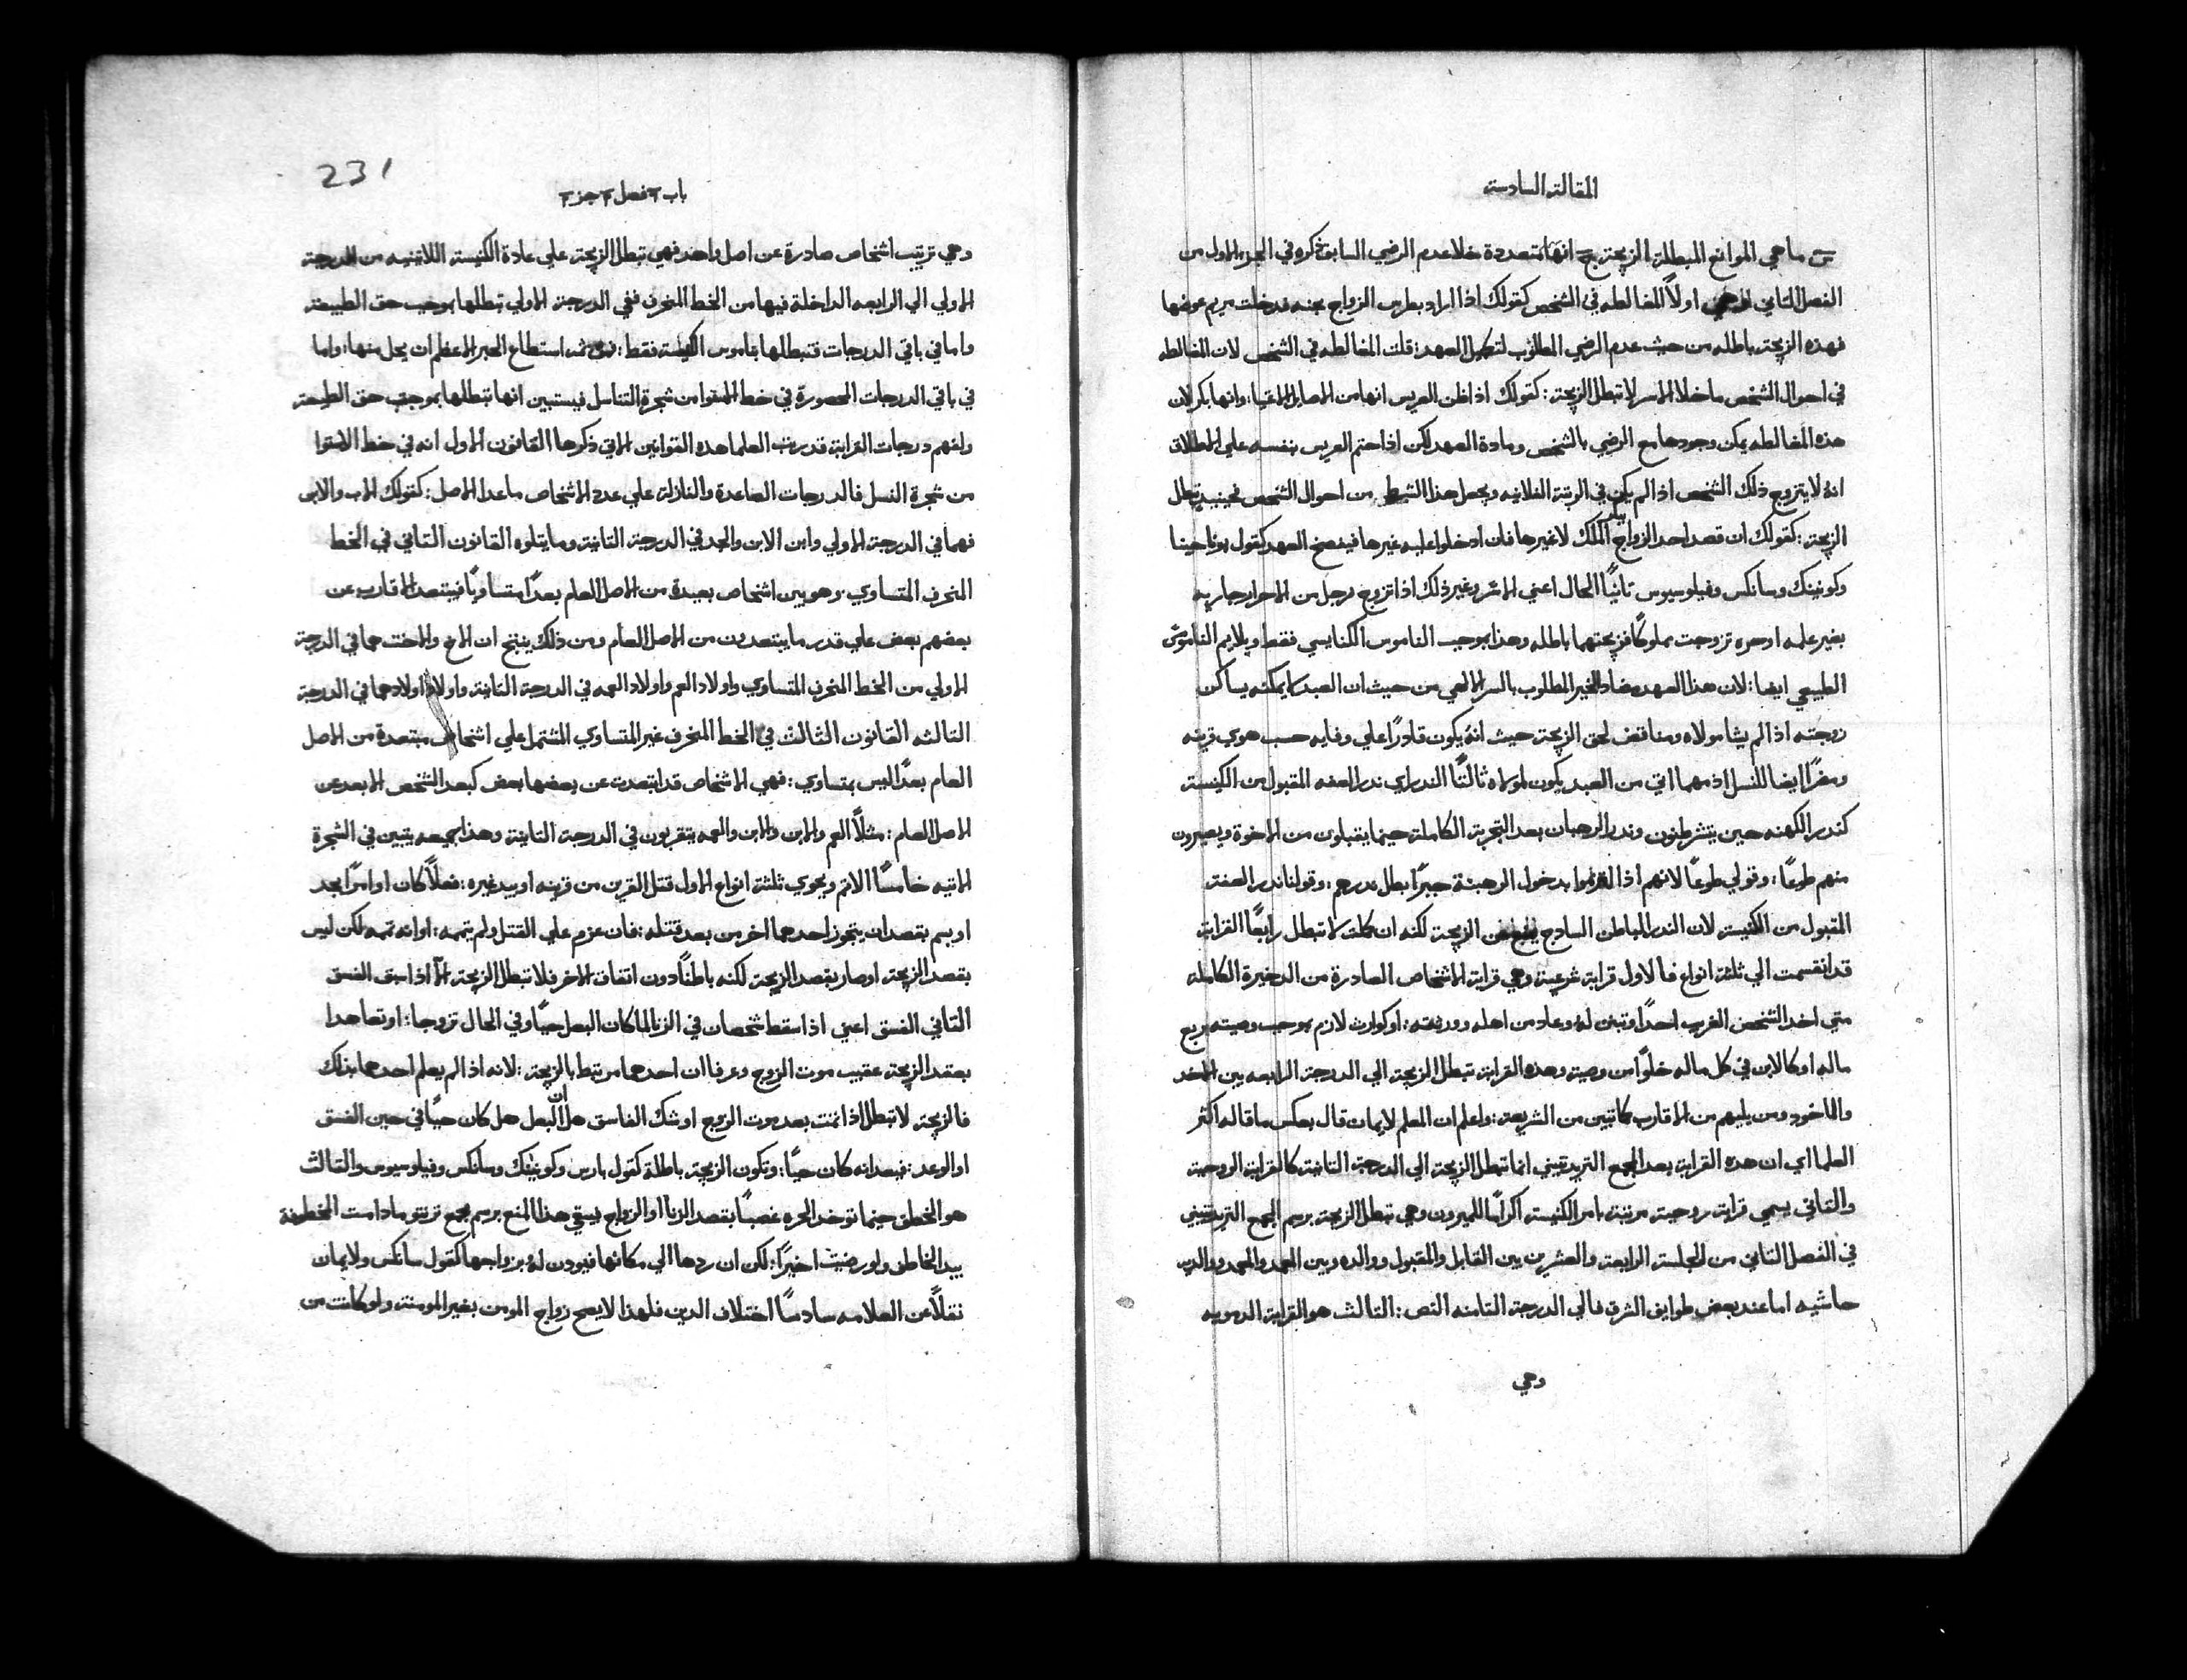 المقالة السادسة
س ما هي الموانع المبطلة الزيجة ج انها متعددة خلا عدم الرضي السابق ذكره في الجزء الاول من
الفصل الثاني اولاً المغالطه في الشخص كقولك اذا اراد بطرس الزواج بحنه فدخلت مريم عوضها
فهذه الزيجة باطله من حيث عدم الرضي المطلوب لتكميل العهد: قلت المغالطه في الشخص لان المغالطه
في احوال الشخص ماخلا الاسر لا تبطل الزيجة: كقولك اذا ظن العريس انها من الاصايل الاغنيا: وانها بكر لان
هذه المغالطه يمكن وجودها مع الرضي بالشخص ومادة العهد لكن اذا حتم العريس بنفسه علي الاطلاق
انه لا يتزوج ذلك الشخص اذا لم يكن في الرتبة الفلانيه ويجعل هذا الشرط من احوال الشخص فحينيذ تبطل
الزيجة: كقولك ان قصد احد الزواج الملك لا غيرها فان ادخلوا عليه غيرها فيفسخ العهد كقول بوناحينا
وكونينك وسانكس وفيلوسيوس ثانياً الحال اعني الاسر وغير ذلك اذا تزوج رجل من الاحرار جاريه
بغير علمه او حره تزوجت مملوكاً فزيجتهما باطله وهذا بموجب الناموس الكنايسي فقط ويلايم الناموس
الطبيعي ايضا: لان هذا العهد مضاد الخير المطلوب بالسر الالهي من حيث ان العبد لا يمكنه يساكن
زوجته اذا لم يشا مولاه ومناقض لحق الزيجة حيث انه يكون قادراً علي وفايه حسب هوي قرينه
ومضراً ايضا للنسل اذ مهما اتي من العبد يكون لمولاه ثالثاً النذر اي نذر العفه المقبول من الكنيسة
كنذر الكهنه حين يتشرطنون ونذر الرهبان بعد التجربة الكاملة حينما يقتبلون من الاخوة ويصيرون
منهم طوعاً: وقولي طوعاً لانهم اذا الزموا بدخول الرهبنة جبراً بطل نذرهم: وقولنا نذر العفة
المقبول من الكنيسة لان النذر الباطن السادج الزيجة لكنه ان كملت لا تبطل رابعاً القرابة
قد انقسمت الي ثلثة انواع فالاول قرابة شرعية وهي قرابة الاشخاص الصادرة من الدخيرة الكاملة
متي اخد الشخص الغريب احداً وتبني له وعاد من اهله وورثته: او كوارث لازم بموجب وصيته بربع
ماله او كالابن في كل ماله خلواً من وصية وهذه القرابة تبطل الزيجة الي الدرجة الرابعه بين الاخد
والماخود ومن يليهم من الاقارب كما تبين من الشريعة: واعلم ان المعلم لايمان قال بعكس ما قاله اكثر
العلما اي ان هذه القرابة بعد المجمع التريدنتيني انما تبطل الزيجة الي الدرجة الثانية كالقرابة الروحية
والثاني يسمي قرابة روحية مرتبة بامر الكنيسة اكراماً للميرون وهي تبطل الزيجة برسم المجمع التريدنتيني
في الفصل الثاني من الجلسة الرابعة والعشرين بين القابل والمقبول ووالده وبين المعمد والمعمد ووالديه
حاشيه اما عند بعض طوايف الشرق فالي الدرجة الثامنه النص: الثالث هو القرابة الدمويه
وهي
231
باب ٣ فصل ٣ جز ٣
وهي ترتيب اشخاص صادرة عن اصل واحد فهي تبطل الزيجة علي عادة الكنيسة اللاتينيه من الدرجة
الاولي الي الرابعه الداخلة فيها من الخط المنحرف ففي الدرجة الاولي تبطلها بموجب حق الطبيعة
واما في باقي الدرجات فتبطلها بناموس الكنيسة فقط: استطاع الحبر الاعظم ان يحل منها: واما
في باقي الدرجات المحصورة في خط الاستوا من شجرة التناسل فيستبين انها تبطلها بموجب حق الطبيعة
ولفهم درجات القرابة قد رتب العلما هذه القوانين الاتي ذكرها القانون الاول انه في خط الاستوا
من شجرة النسل فالدرجات الصاعدة والنازلة علي عدد الاشخاص ماعدا الاصل: كقولك الاب والابن
فهما في الدرجة الاولي وابن الابن والجد في الدرجة الثانية وما يتلوه القانون الثاني في الخط
المنحرف المتساوي. وهو بين اشخاص بعيدة من الاصل العام بعداً متساوياً فيبتعد الاقارب عن
بعضهم بعض علي قدر ما يبتعدون من الاصل العام ومن ذلك ينتج ان الاخ والاخت هما في الدرجة
الاولي من الخط المنحرف المتساوي واولاد العم واولاد العمه في الدرجة الثانية واولاد اولادهما في الدرجة
الثالثه القانون الثالث في الخط المنحرف غير المتساوي المشتمل علي اشخاص مبتعدة من الاصل
العام بعداً ليس بمتساوي: فهي الاشخاص قد ابتعدت عن بعضها بعض كبعد الشخص الابعد عن
الاصل العام: مثلاً العم والابن والابن والعمه يتقربون في الدرجة الثانية وهذا جميعه يتبين في الشجرة
الاتيه خامساً الاثم ويحوي ثلثة انواع الاول قتل القرين من قرينه او بيد غيره: فعلاً كان او امراً بحد
او بسم بقصد ان يتجوز احدهما اخر من بعد قتله: فان عزم علي القتل ولم يتممه: او انه تممه لكن ليس
بقصد الزيجة او صار بقصد الزيجة لكنه باطناً دون اتفاق الاخر فلا تبطل الزيجة الا اذا سبق الفسق
الثاني الفسق اعني اذا سقط شخصان في الزنا لما كان البعل حياً وفي الحال تزوجا: او تعاهدا
بعقد الزيجة عقيب موت الزوج وعرفا ان احدهما مرتبط بالزيجة: لانه اذا لم يعلم احدهما بذلك
فالزيجة لا تبطل اذا تمت بعد موت الزوج او شك الفاسق هل ان البعل هل كان حياً في حين الفسق
او الوعد: فبعد انه كان حياً: وتكون الزيجة باطلة كقول بارس وكونينك وسانكس وفيلوسيوس والثالث
هو الخطف حينما توخد الحره غصباً بقصد الزنا او الزواج يبقي هذا المنع برسم مجمع ترنتو مادامت المخطوفة
بيد الخاطف ولو رضيت اخيراً: لكن ان ردها الي مكانها فيودن له بزواجها كقول سانكس ولايمان
نقلاً عن العلامه سادساً اختلاف الدين فلهذا لا يصح زواج المومن بغير المومنة ولو كانت من